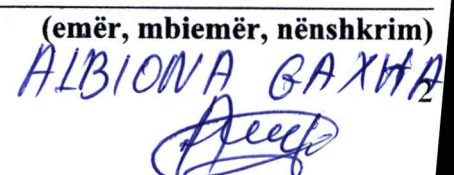 (emër, mbiemër, nënshkrim)
ALBIONA GAXHA
2